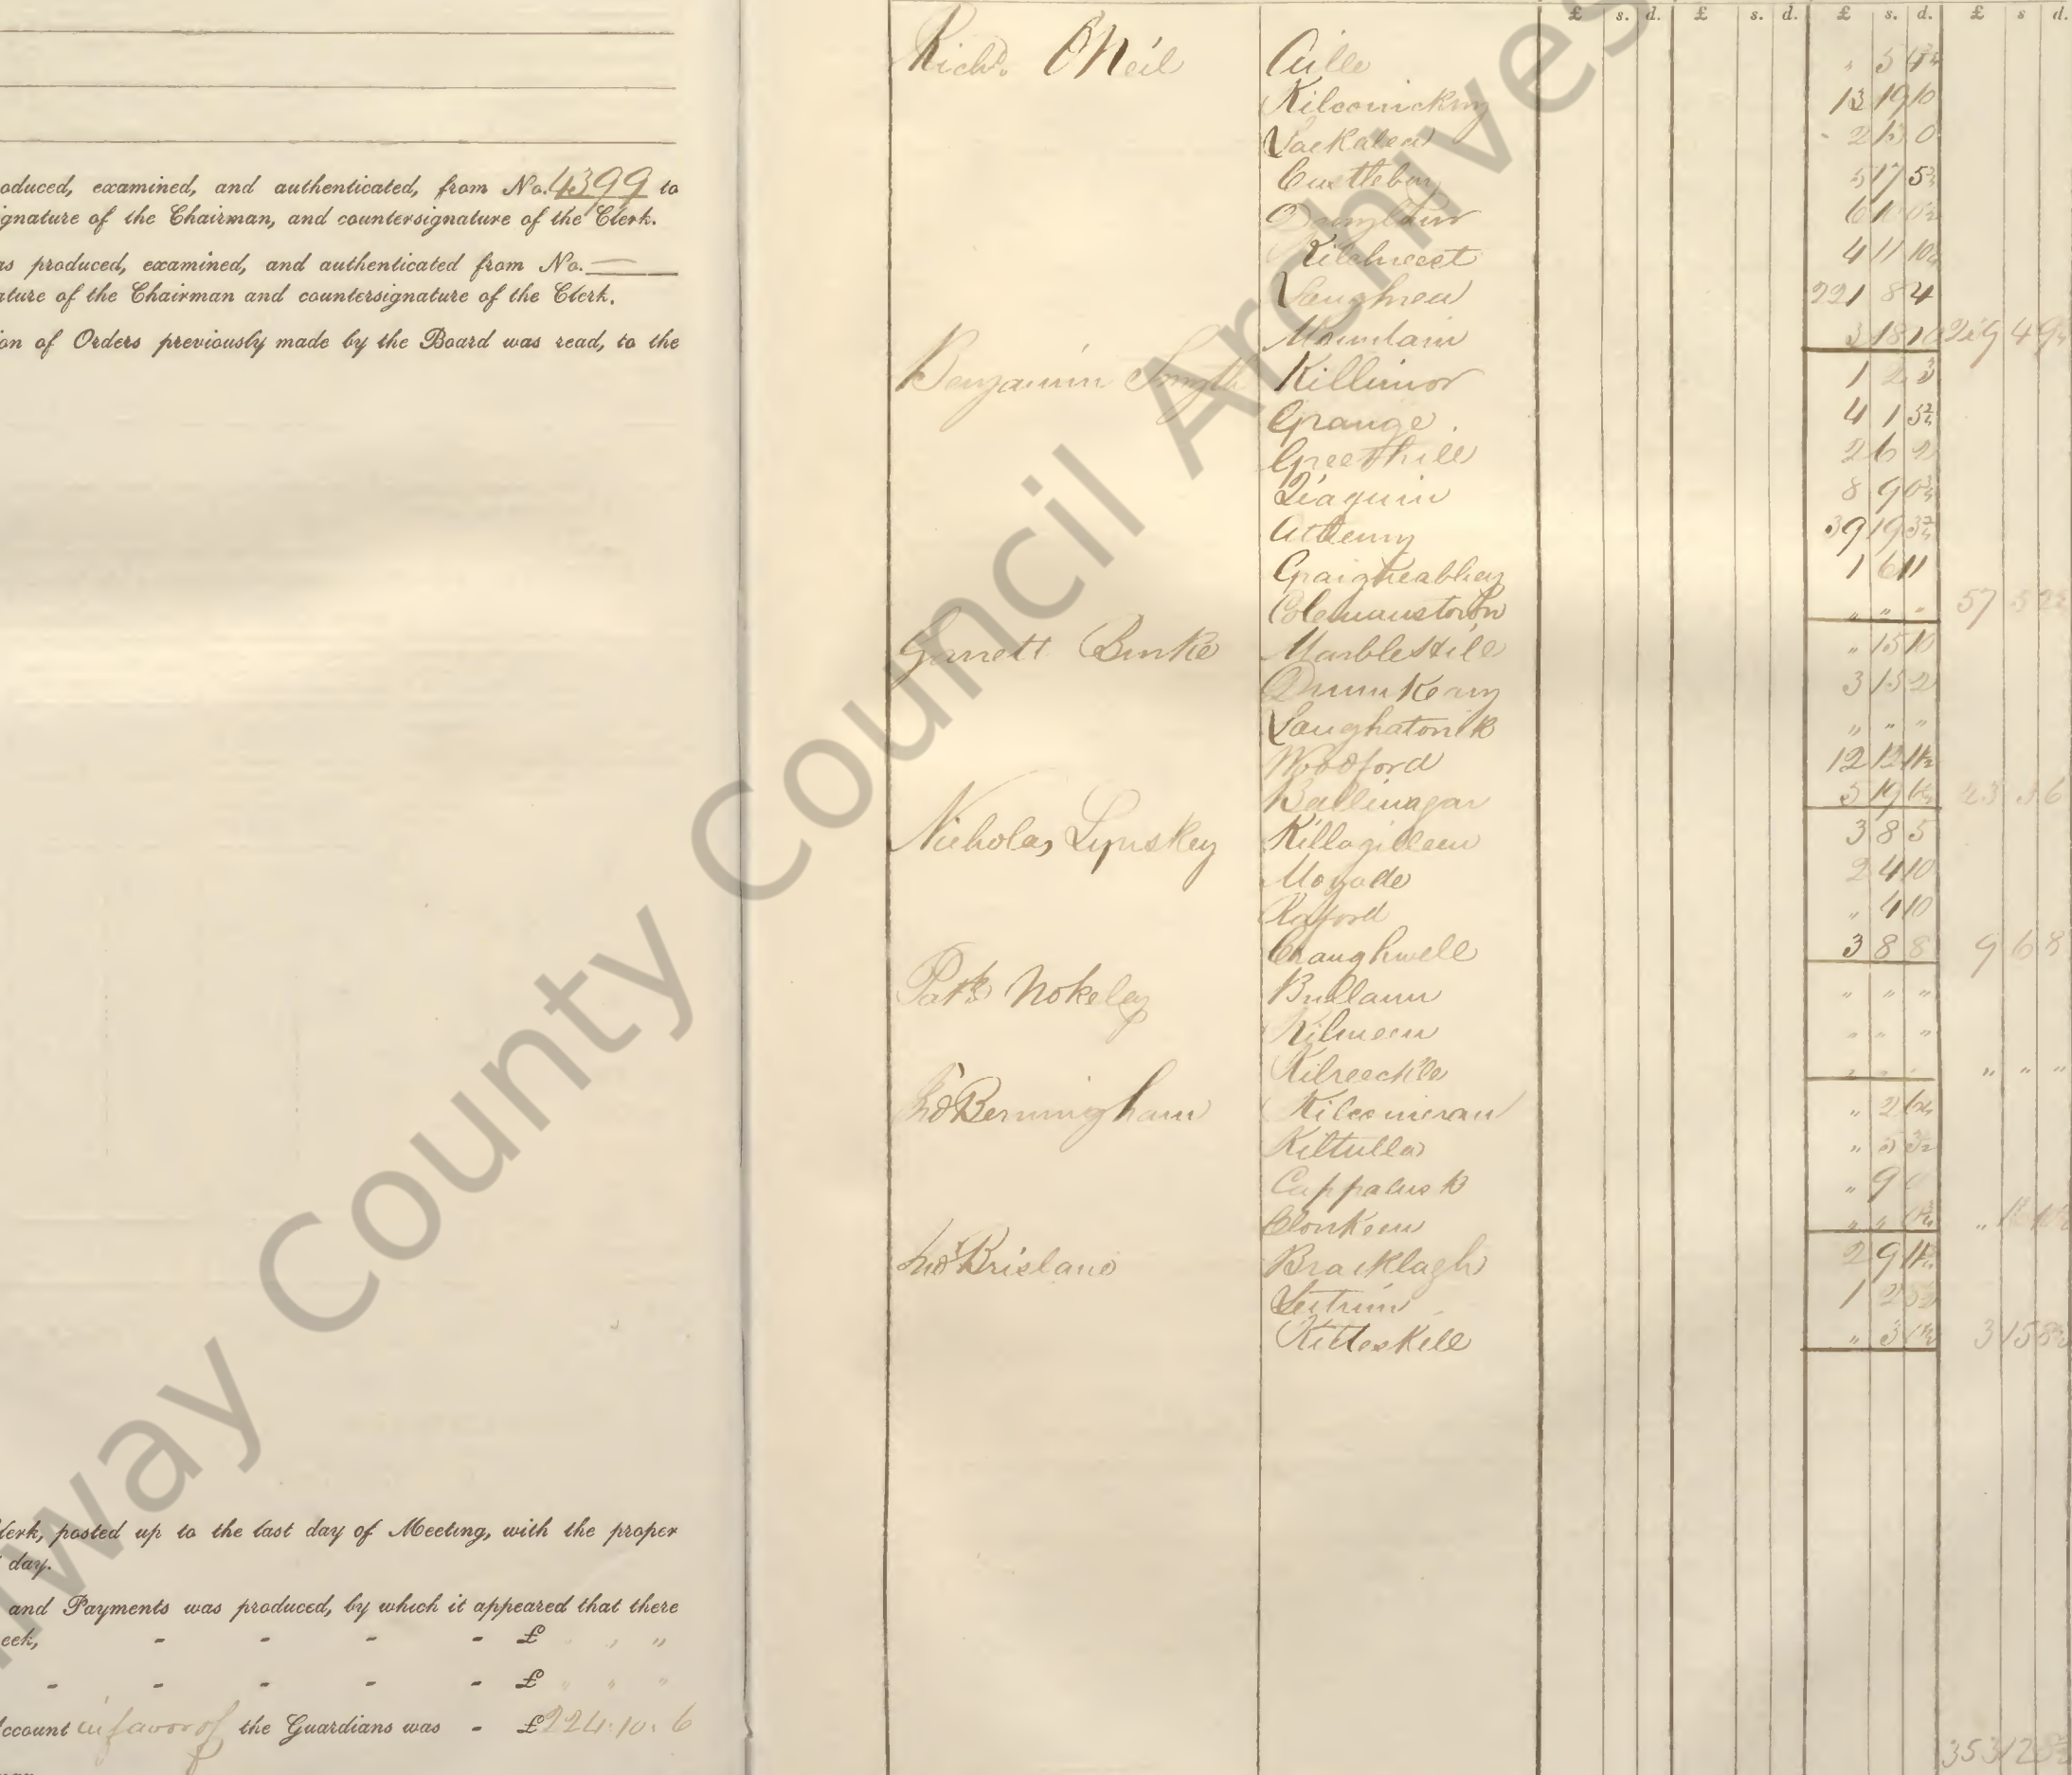 oduced, examined, and authenticated, from No. 4399 to
ignature of the Chairman, and countersignature of the Clerk.
as produced, examined, and authenticated from No. —
ature of the Chairman and countersignature of the Clerk.
on of Orders previously made by the Board was read, to the
lerk, posted up to the last day of Meeting, with the proper
day.
and Payments was produced, by which it appeared that there
eek, - - - - £ " " "
- - - - - £ " " "
ccount in favor of the Guardians was - £224.10.6
£ s. d. £ s. d. £ s. d. £ s d.
Richd. O'Neil Aille " 5
Kilconickny 13 19 10
Lackalea 2 0
Castleboy 5 17
Drumkeary
Kilchreest 4 11
Loughrea 221 8 4
Mountain 3 18 10 219 4
Benjamin Smyth Killimor 1 2 3
Grange 4 1
Greethill 2 6 2
Tiaquin 8 9
Athenry 39 19
Graigueabbey 1 6 11
Colemanstown " " " 57
Garrett Burke Marblehill " 15 10
Drumkeary 3 15 2
Loughatorick " " "
Woodford 12 12
Ballinagar 5 19 23 3 6
Nicholas Lynskey Killogilleen 3 8 5
Moyode 2 4 10
Raford " 4 10
Craughwell 3 8 8 9 6 8
Patk. Nokeley Bullaun " " "
Kilmeen " " "
Kilreeckle " " " " " "
Jno. Bermingham Kilconieran " 2
Kiltulla "
Cappalusk " 9
Clonkeen " "
Jno. Brislane Bracklagh 2 9
Leitrim 1 2
Kilteskill " 3 3 15
353 12
Galway County Council Archives